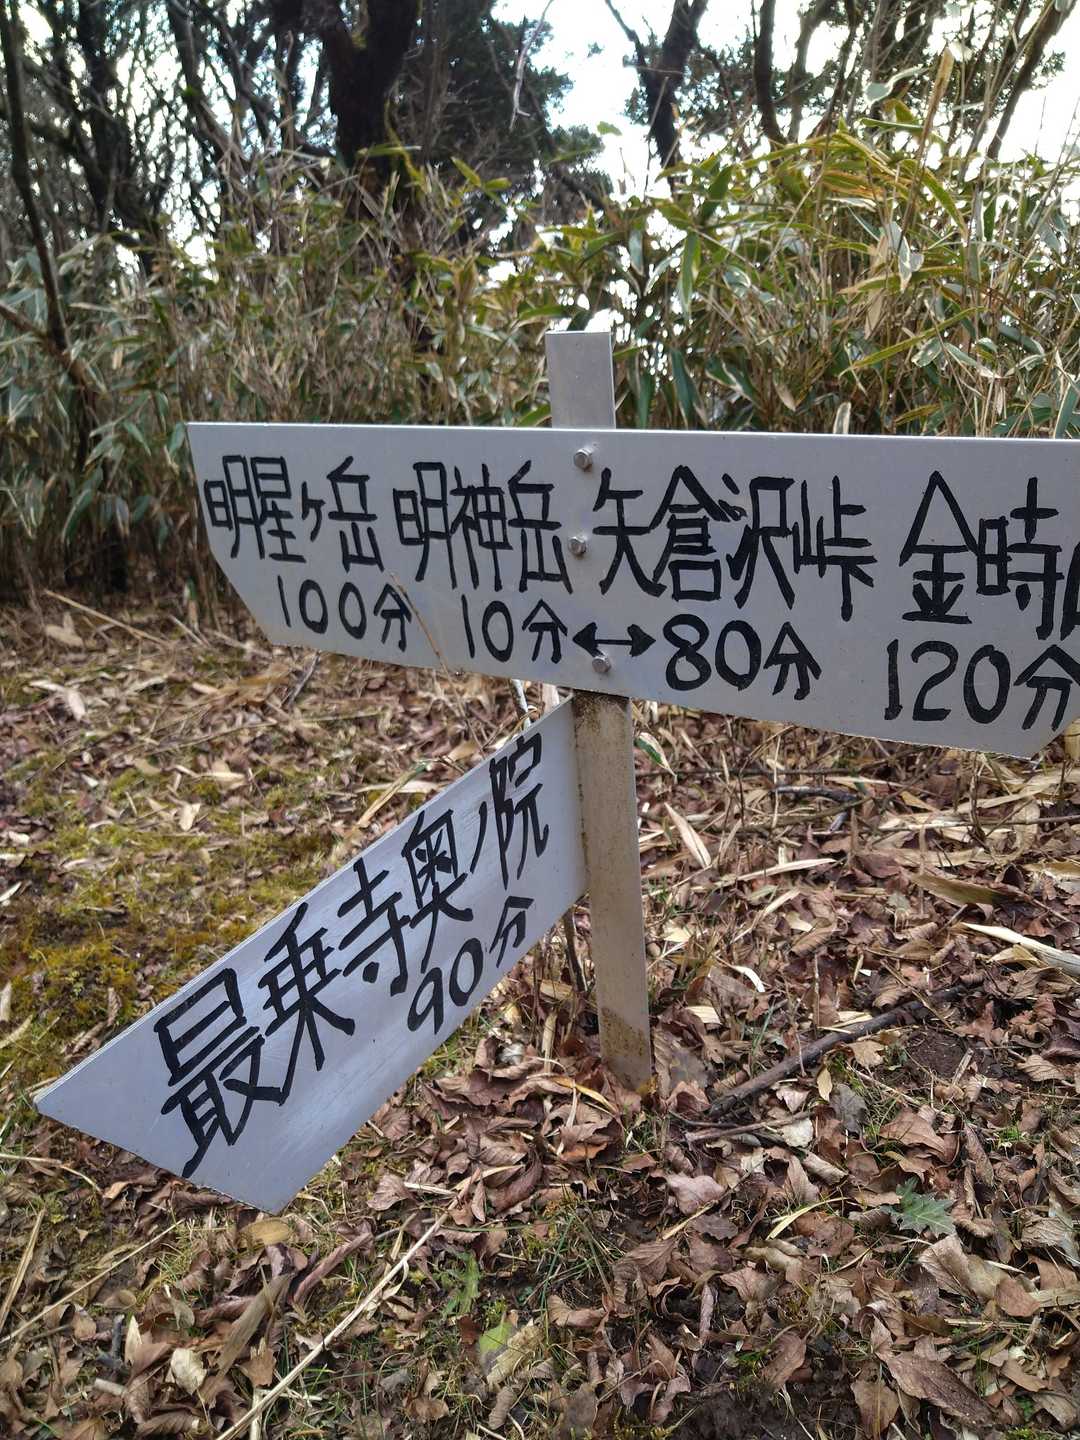 明星ヶ岳 明神岳 矢倉沢峠 金時
100分 10分↔80分 120分
最乗寺奥ノ院
90分